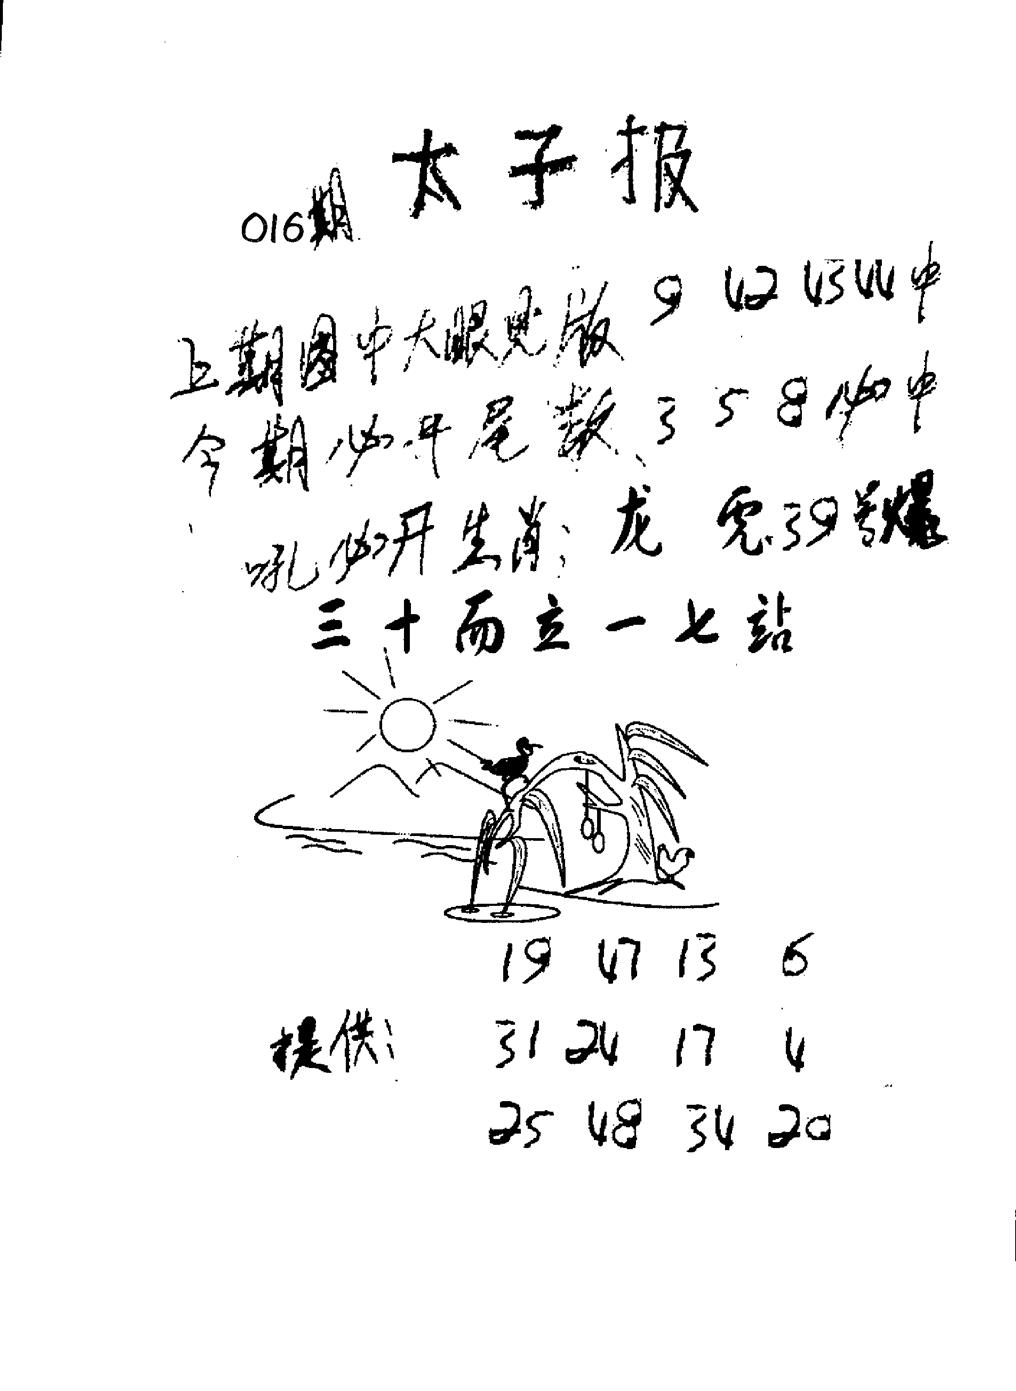 太子报
016期
上期图中大眼见版 9 42 43 44中
今期必开尾数、3 5 8必中
吼必开生肖：龙 虎.39号爆
三十而立一七站
19 47 13 6
提供： 31 24 17 4
25 48 34 20